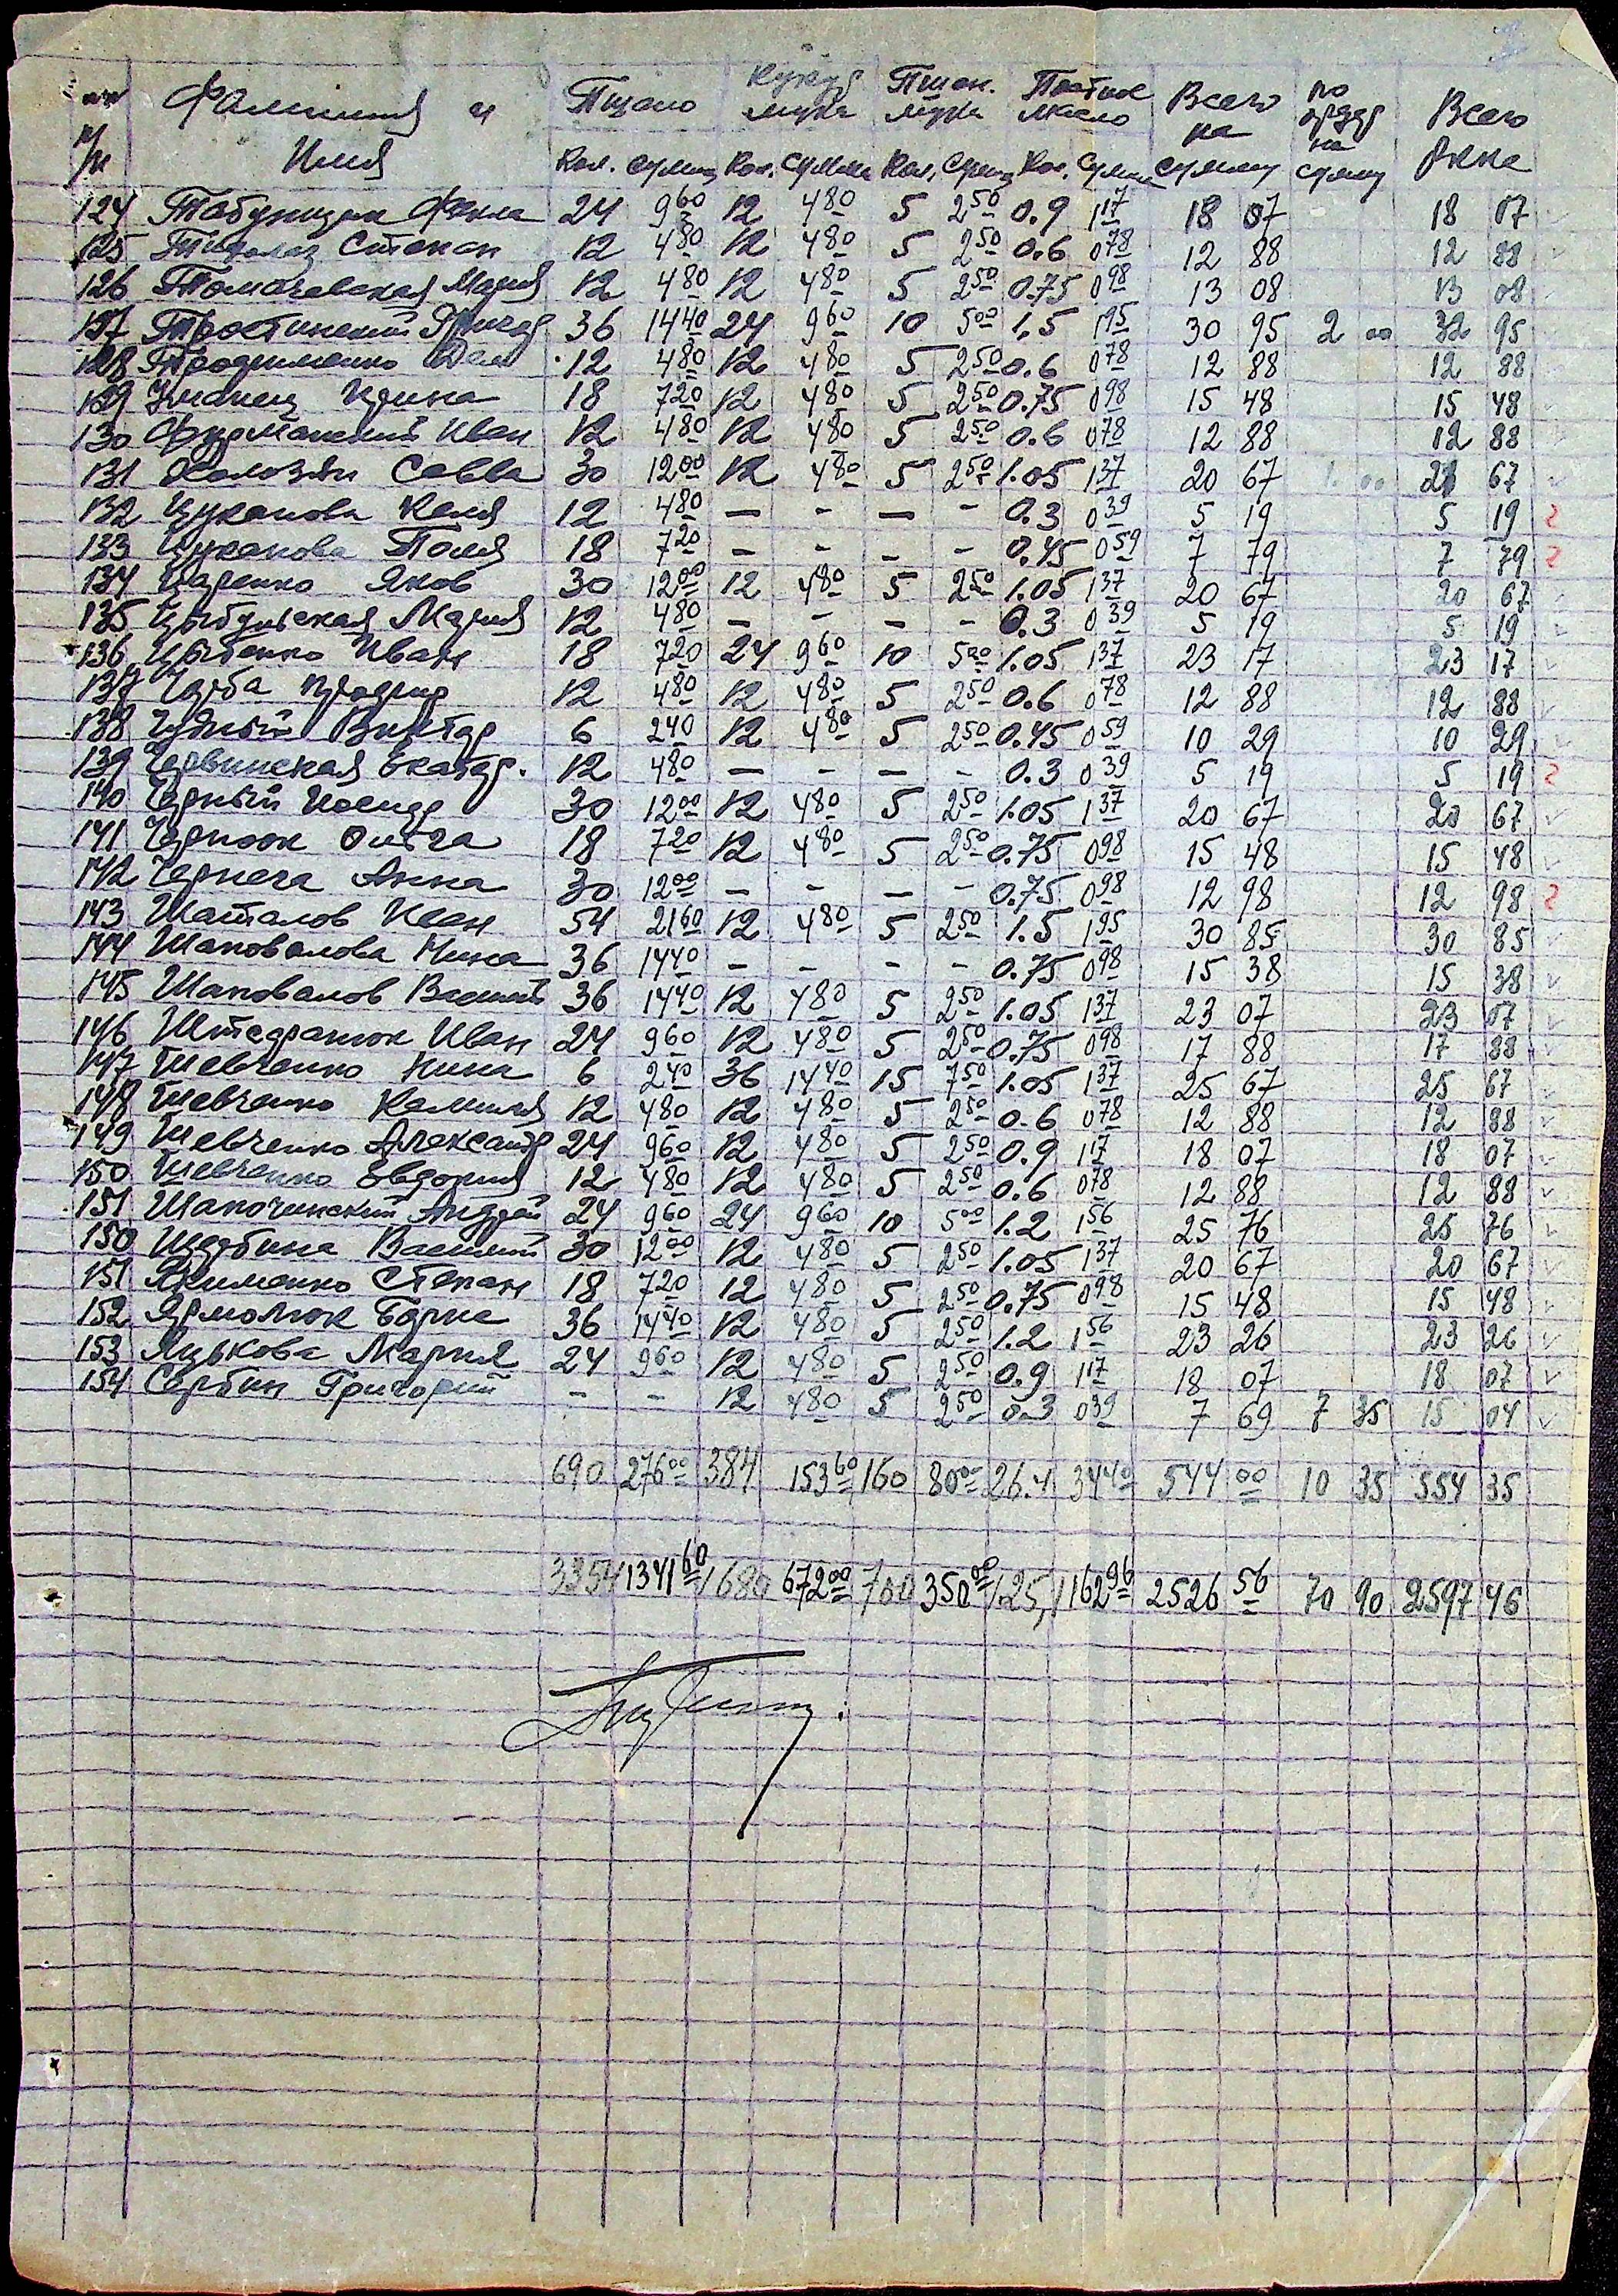 №№ п/п Фамилия и Имя Пшено Кукур мука Пшен. мука Постное масло Всего на сумму по ордер на сумму Всего
Кол. Сумма Кол. Сумма Кол. Сумма Кол. Сумма
124 Табунщик Фекла 24 9 60 12 4 80 5 2 50 0.9 1 17 18 07 18 07
125 Степан 12 4 80 12 4 80 5 2 50 0.6 0 78 12 88 12 88
126 Томачевская Мария 12 4 80 12 4 80 5 2 50 0.75 0 98 13 08 13 08
127 Тростинский Григор 36 14 40 24 9 60 10 5 00 1.5 1 95 30 95 2 00 32 95
128 Трофименко Дем 12 4 80 12 4 80 5 2 50 0.6 0 78 12 88 12 88
129 Уманец Ирина 18 7 20 12 4 80 5 2 50 0.75 0 98 15 48 15 48
130 Фурманский Иван 12 4 80 12 4 80 5 2 50 0.6 0 78 12 88 12 88
131 Холозян Савва 30 12 00 12 4 80 5 2 50 1.05 1 37 20 67 1. 00 21 67
132 Цуканова Келя 12 4 80 – – – – 0.3 0 39 5 19 5 19
133 Цуканова Поля 18 7 20 – – – – 0.45 0 59 7 79 7 79
134 Царенко Яков 30 12 00 12 4 80 5 2 50 1.05 1 37 20 67 20 67
135 Цыбульская Мария 12 4 80 – – – – 0.3 0 39 5 19 5 19
136 Иван 18 7 20 24 9 60 10 5 00 1.05 1 37 23 17 23 17
137 12 4 80 12 4 80 5 2 50 0.6 0 78 12 88 12 88
138 Чудный Виктор 6 2 40 12 4 80 5 2 50 0.45 0 59 10 29 10 29
139 Червинская Екатер. 12 4 80 – – – – 0.3 0 39 5 19 5 19
140 Черный 30 12 00 12 4 80 5 2 50 1.05 1 37 20 67 20 67
141 Чернюк Ольга 18 7 20 12 4 80 5 2 50 0.75 0 98 15 48 15 48
142 Чернега Анна 30 12 00 – – – – 0.75 0 98 12 98 12 98
143 Шаталов Иван 54 21 60 12 4 80 5 2 50 1.5 1 95 30 85 30 85
144 Шаповалова Нина 36 14 40 – – – – 0.75 0 98 15 38 15 38
145 Шаповалов Василь 36 14 40 12 4 80 5 2 50 1.05 1 37 23 07 23 07
146 Иван 24 9 60 12 4 80 5 2 50 0.75 0 98 17 88 17 88
147 Шевченко Нина 6 2 40 36 14 40 15 7 50 1.05 1 37 25 67 25 67
148 Шевченко 12 4 80 12 4 80 5 2 50 0.6 0 78 12 88 12 88
149 Шевченко Александр 24 9 60 12 4 80 5 2 50 0.9 1 17 18 07 18 07
150 Шевченко Евдокия 12 4 80 12 4 80 5 2 50 0.6 0 78 12 88 12 88
151 Шапочинский Андрей 24 9 60 24 9 60 10 5 00 1.2 1 56 25 76 25 76
150 Щербина Василий 30 12 00 12 4 80 5 2 50 1.05 1 37 20 67 20 67
151 Якименко Степан 18 7 20 12 4 80 5 2 50 0.75 0 98 15 48 15 48
152 Ярмолюк Борис 36 14 40 12 4 80 5 2 50 1.2 1 56 23 26 23 26
153 Яцькова Мария 24 9 60 12 4 80 5 2 50 0.9 1 17 18 07 18 07
154 Сербин Григорий – – 12 4 80 5 2 50 0.3 0 39 7 69 7 35 15 04
690 276 00 384 153 60 160 80 00 26.4 34 40 544 00 10 35 554 35
3354 1341 60 1680 672 00 700 350 00 125,1 162 96 2526 56 70 90 2597 46